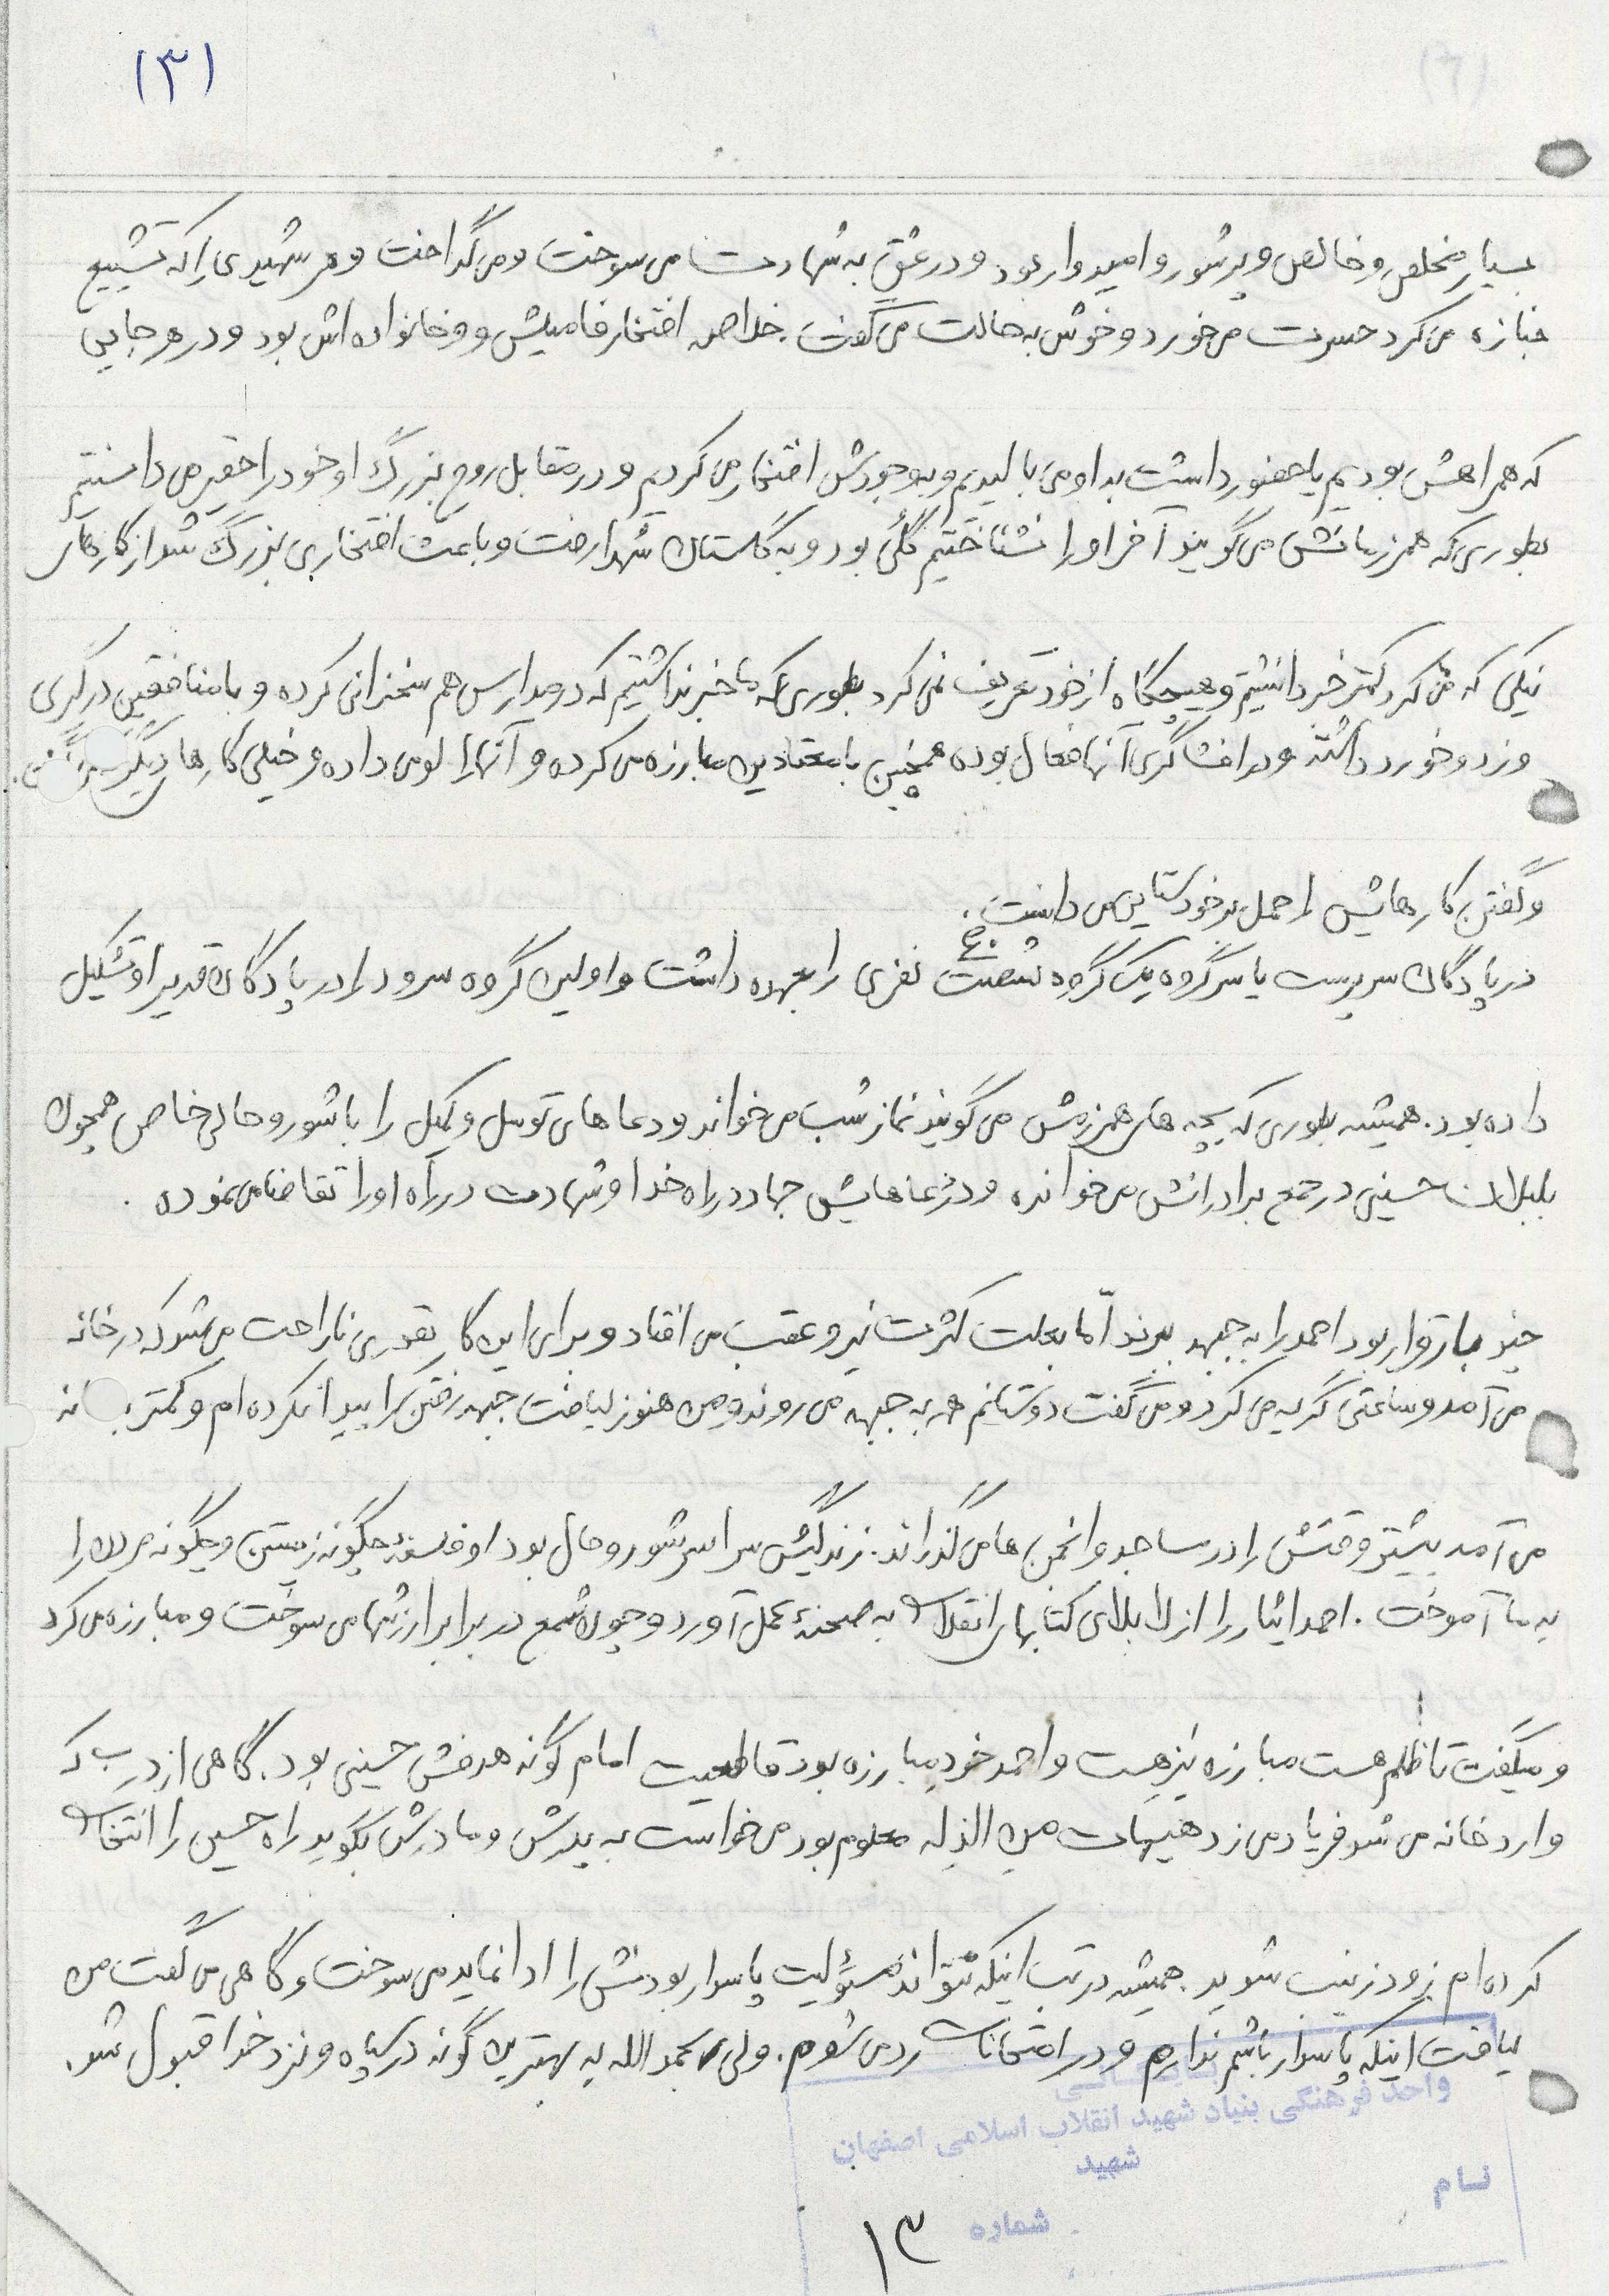 (۳)
بسیار مخلص و خالص و پرشور و امیدوار بود و در عشق به شهادت می سوخت و می گداخت و هر شهیدی را که تشییع
جنازه می کرد حسرت می خورد و خوش به حالت می گفت. خلاصه افتخار فامیلش و و خانواده اش بود و در هر جایی
که همراهش بودیم یا حضور داشت به او می بالیدیم و بوجودش افتخار می کردیم و در مقابل روح بزرگ او خود را حقیر می دانستیم
بطوری که همرزمانش می گویند آخر او را نشناختیم گلی بود و به گلستان شهدا رفت و باعث افتخاری بزرگ شد از کارهای
نیکی که می کرد کمتر خبر داشتیم و هیچگاه از خود تعریف نمی کرد بطوری که ما خبر نداشتیم که در مدارس هم سخنرانی کرده و با منافقین درگیری
و زد و خورد داشته و در افشاگری آنها فعال بوده همچنین با معتادین مبارزه می کرده و آنها را لو می داده و خیلی کارهای دیگر
و گفتن کارهایش را حمل بر خودستایی می دانست.
در پادگان سرپرست یا سرگروه یک گروه شصت نفری را بعهده داشت و اولین گروه سرود را در پادگان قدیر او تشکیل
داده بود. همیشه بطوری که بچه های همرزمش می گویند نماز شب می خواند و دعاهای توسل و کمیل را با شور و حالی خاص همچون
بلبلان حسینی در جمع برادرانش می خوانده و در دعاهایش جهاد در راه خدا و شهادت در راه او را تقاضا می نموده .
چند بار قرار بود احمد را به جبهه ببرند اما بعلت کثرت نیرو عقب می افتاد و برای این کار بقدری ناراحت می شد که در خانه
می آمد و ساعتی گریه می کرد و می گفت دوستانم همه به جبهه می روند و من هنوز لیاقت جبهه رفتن را پیدا نکرده ام و کمتر
می آمد بیشتر وقتش را در مساجد و انجمن ها می گذراند. زندگیش سراسر شور و حال بود او فلسفه چگونه زیستن و چگونه مردن را
به ما آموخت . احمد ایثار را از لابلای کتابهای انقلاب به صحنهٔ عمل آورد و چون شمع در برابر ارزشها می سوخت و مبارزه می کرد
و میگفت تا ظلم هست مبارزه نیز هست و احمد خود مبارزه بود قاطعیت امام گونه هدفش حسینی بود. گاهی از درب که
وارد خانه می شد فریاد می زد هیهات من الذله معلوم بود می خواست به پدرش و مادرش بگوید راه حسین را انتخاب
کرده ام زود زینب شوید. همیشه در تب اینکه نتواند مسؤلیت پاسدار بودنش را ادا نماید می سوخت و گاهی می گفت من
لیاقت اینکه پاسدار باشم ندارم و در امتحانات رد می شوم. ولی بحمد الله به بهترین گونه در سپاه و نزد خدا قبول شد.
واحد فرهنگی بنیاد شهید انقلاب اسلامی اصفهان
شهید
نام
شماره ۱۳